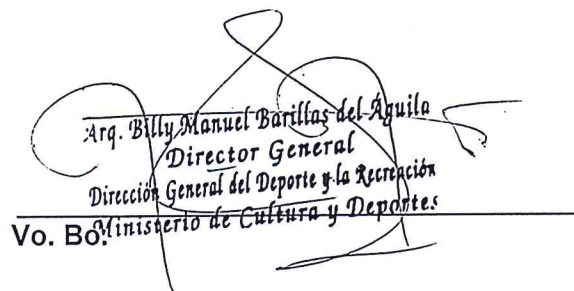 Arq. Billy Manuel Barillas del Águila
Director General
Dirección General del Deporte y la Recreación
Ministerio de Cultura y Deportes
Vo. Bo.